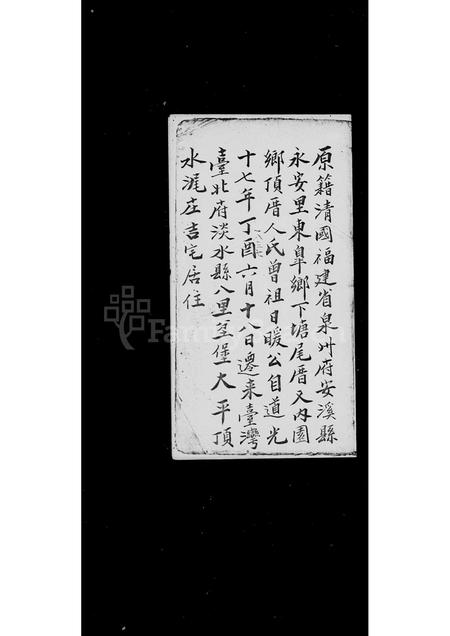 原籍清國福建省泉州府安溪縣
永安里東皐鄉下塘尾厝又內園
鄉頂厝人氏曾祖日暖公自道光
十七年丁酉六月十八日遷來臺灣
臺北府淡水縣八里坌堡一大平頂
水漽庄吉宅居住